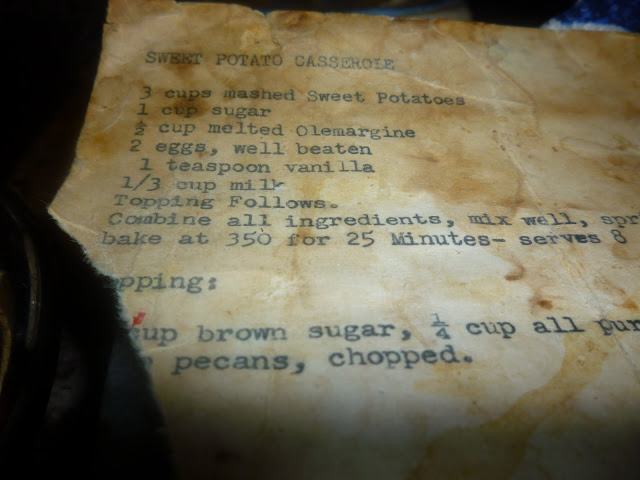 SWEET POTATO CASSEROLE
3 cups mashed Sweet Potatoes
1 cup sugar
½ cup melted Olemargine
2 eggs, well beaten
1 teaspoon vanilla
1/3 cup milk
Topping Follows.
Combine all ingredients, mix well, spr
bake at 350 for 25 Minutes- serves 8
pping:
up brown sugar, ¼ cup all pur
pecans, chopped.